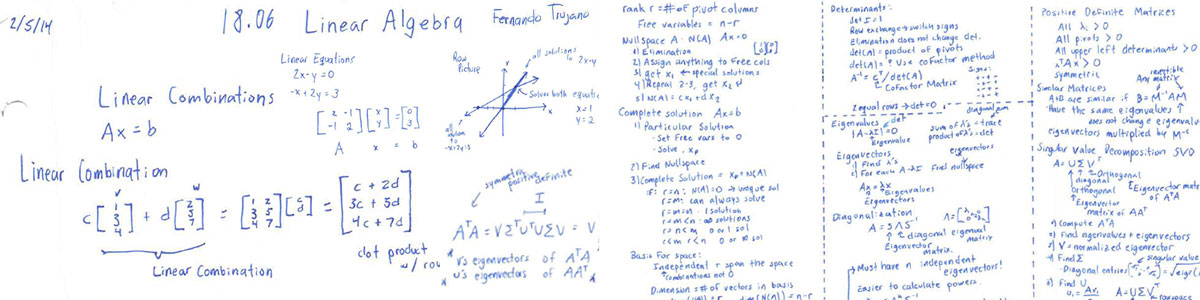 2/5/14
18.06 Linear Algebra
Fernando Trujano
Linear Equations
2x-y=0
-x+2y=3
Linear Combinations
Ax=b
[2 -1; -1 2] [x; y] = [0; 3]
A x = b
Row Picture
all solutions to 2x-y
Solves both equatio
x=1
y=2
all solution to -x+2y=3
Linear Combination
v w
c[1; 3; 4] + d[2; 5; 7] = [1 2; 3 5; 4 7] [c; d] = [c + 2d; 3c + 5d; 4c + 7d]
Linear Combination
dot product
w/ row
symmetric positive definite
I
AᵀA = VΣᵀUᵀUΣV = V
v's eigenvectors of AᵀA
u's eigenvectors of AAᵀ
rank r = # of pivot columns
Free variables = n-r
Nullspace A - N(A) Ax=0
1) Elimination
2) Assign anything to Free cols
3) get x₁ ← special solutions
4) Repeat 2-3, get x₂
5) N(A) = cx₁ + dx₂
Complete solution Ax=b
1) Particular Solution
- Set Free vars to 0
- Solve, xp
2) Find Nullspace
3) Complete Solution = xp + N(A)
if: r=n: N(A)=0 → unique sol
r=m: can always solve
r=m=n: 1 solution
r=m<n: ∞ solutions
r=n<m 0 or 1 sol
r<m r<n 0 or ∞ sol
Basis For space:
Independent + span the space
↑ combinations not 0
Dimension = # of vectors in basis
Determinants:
det I = 1
Row exchange → switch signs
Elimination does not change det.
det(A) = product of pivots
det(A) = ? Use cofactor method
A⁻¹ = Cᵀ/det(A)
Cofactor Matrix
Signs:
2 equal rows → det=0
Eigenvalues
det
|A-λI| = 0
Eigenvalue
sum of λ's = trace
product of λ's = det
Eigenvectors
eigenvectors
1) Find λ's
2) For each A-λI Find nullspace
Ax = λx
Eigenvalues
Eigenvectors
Diagonalization
A = SΛS⁻¹
diagonal eigenval matrix
Eigenvector matrix
Must have n independent eigenvectors!
Easier to calculate powers.
Positive Definite Matrices
All λ; > 0
All pivots > 0
All upper left determinants > 0
xᵀAx > 0
symmetric
Similar Matrices
Any matrix
A+B are similar if B = M⁻¹AM
Have the same eigenvalues
does not change eigenvalu
eigenvectors multiplied by M⁻¹
Singular Value Decomposition SVD
A = UΣVᵀ
Orthogonal
diagonal
Orthogonal
[Eigenvector mat of AᵀA
Eigenvector matrix of AAᵀ
1) compute AᵀA
2) Find eigenvalues + eigenvectors
3) V = normalized eigenvector
4) Find Σ
singular value
- Diagonal entries
5) Find U
A = UΣVᵀ